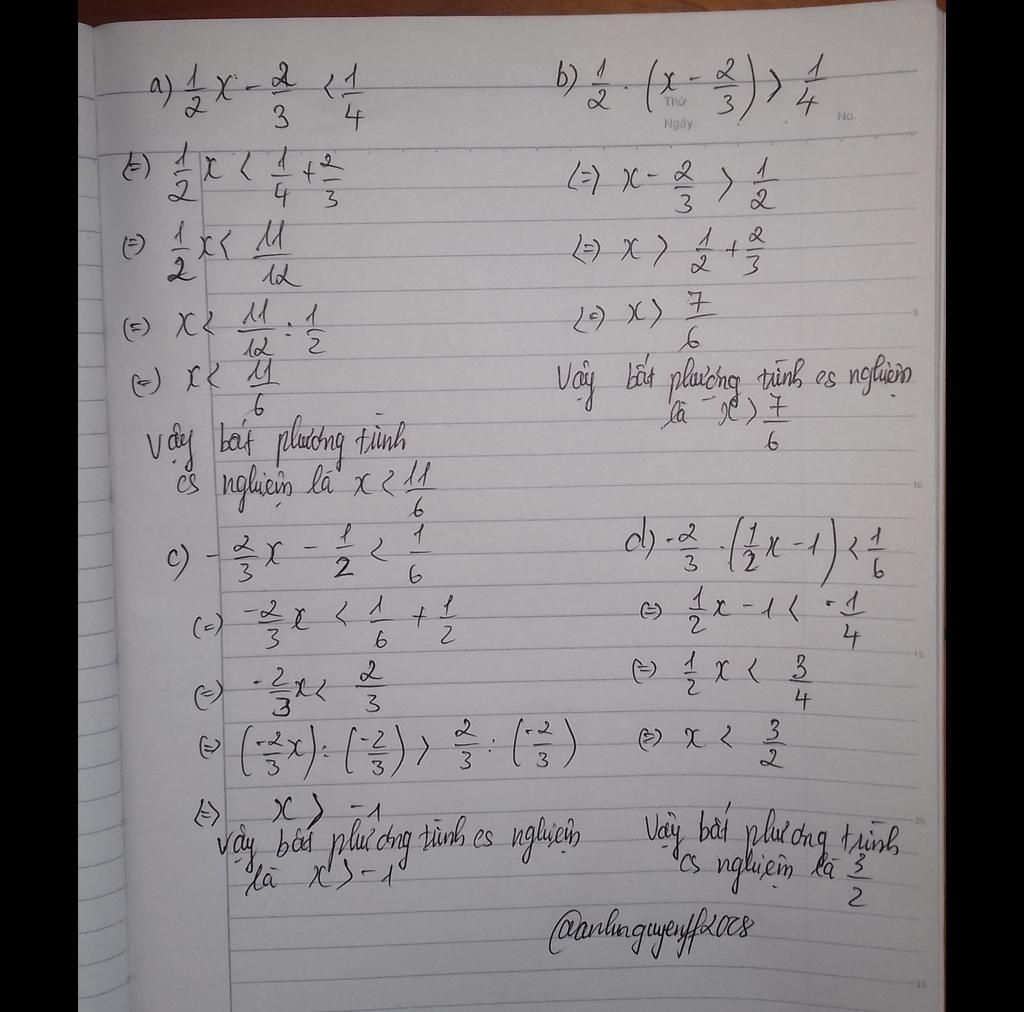 a) 1/2 x - 2/3 < 1/4
(=) 1/2 x < 1/4 + 2/3
(=) 1/2 x < 11/12
(=) x < 11/12 : 1/2
(=) x < 11/6
Vậy bất phương trình
có nghiệm là x < 11/6
b) 1/2 . (x - 2/3) > 1/4
Thứ
Ngày
No.
(=) x - 2/3 > 1/2
(=) x > 1/2 + 2/3
(=) x > 7/6
Vậy bất phương trình có nghiệm
là x > 7/6
c) -2/3 x - 1/2 < 1/6
(=) -2/3 x < 1/6 + 1/2
(=) -2/3 x < 2/3
(=) (-2/3 x) : (-2/3) > 2/3 : (-2/3)
(=) x > -1
Vậy bất phương trình có nghiệm
là x > -1
d) -2/3 . (1/2 x - 1) < 1/6
(=) 1/2 x - 1 < -1/4
(=) 1/2 x < 3/4
(=) x < 3/2
Vậy bất phương trình
có nghiệm là 3/2
@anhnguyenff2008
5
10
15
20
25